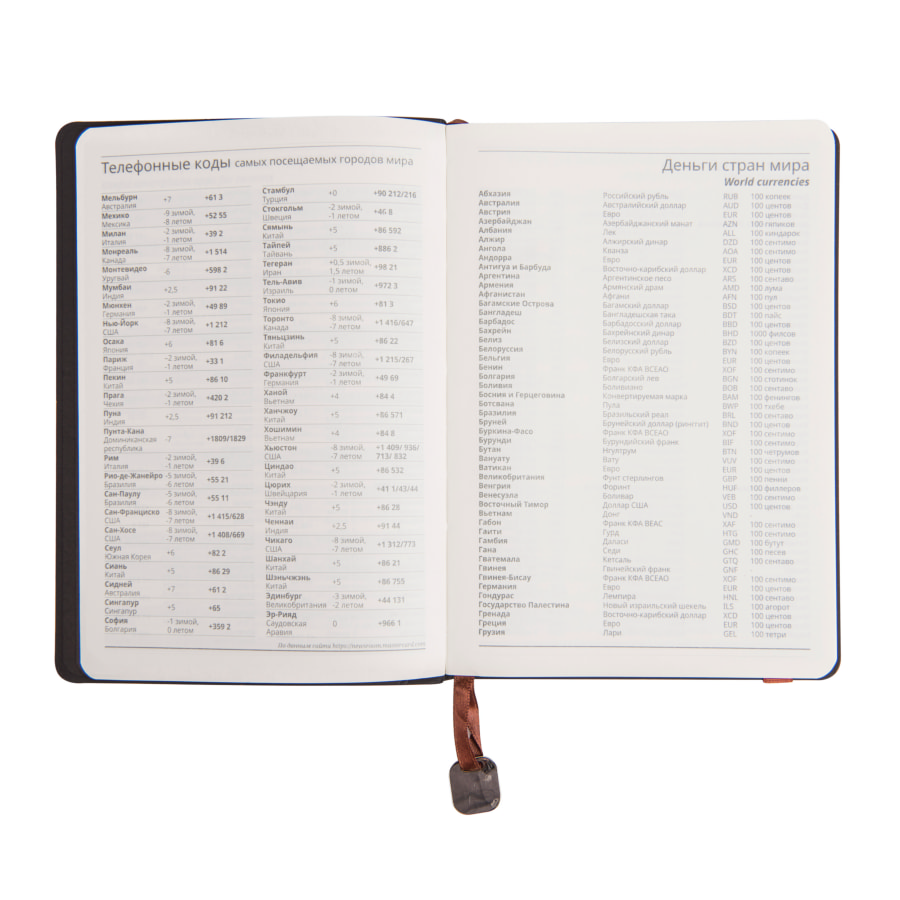 Телефонные коды самых посещаемых городов мира
Мельбурн
Австралия +7 +61 3
Мехико -9 зимой,
Мексика -8 летом +52 55
Милан -2 зимой,
Италия -1 летом +39 2
Монреаль -8 зимой,
Канада -7 летом +1 514
Монтевидео
Уругвай -6 +598 2
Мумбаи
Индия +2,5 +91 22
Мюнхен -2 зимой,
Германия -1 летом +49 89
Нью-Йорк -8 зимой,
США -7 летом +1 212
Осака
Япония +6 +81 6
Париж -2 зимой,
Франция -1 летом +33 1
Пекин
Китай +5 +86 10
Прага -2 зимой,
Чехия -1 летом +420 2
Пуна
Индия +2,5 +91 212
Пунта-Кана
Доминиканская -7 +1809/1829
республика
Рим -2 зимой,
Италия -1 летом +39 6
Рио-де-Жанейро -5 зимой,
Бразилия -6 летом +55 21
Сан-Паулу -5 зимой,
Бразилия -6 летом +55 11
Сан-Франциско -8 зимой,
США -7 летом +1 415/628
Сан-Хосе -8 зимой,
США -7 летом +1 408/669
Сеул
Южная Корея +6 +82 2
Сиань
Китай +5 +86 29
Сидней
Австралия +7 +61 2
Сингапур
Сингапур +5 +65
София -1 зимой,
Болгария 0 летом +359 2
Стамбул
Турция +0 +90 212/216
Стокгольм -2 зимой,
Швеция -1 летом +46 8
Сямынь
Китай +5 +86 592
Тайпей
Тайвань +5 +886 2
Тегеран +0,5 зимой,
Иран 1,5 летом +98 21
Тель-Авив -1 зимой,
Израиль 0 летом +972 3
Токио
Япония +6 +81 3
Торонто -8 зимой,
Канада -7 летом +1 416/647
Тяньцзинь
Китай +5 +86 22
Филадельфия -8 зимой,
США -7 летом +1 215/267
Франкфурт -2 зимой,
Германия -1 летом +49 69
Ханой
Вьетнам +4 +84 4
Ханчжоу
Китай +5 +86 571
Хошимин
Вьетнам +4 +84 8
Хьюстон -8 зимой, +1 409/ 936/
США -7 летом 713/ 832
Циндао
Китай +5 +86 532
Цюрих -2 зимой,
Швейцария -1 летом +41 1/43/44
Чэнду
Китай +5 +86 28
Ченнаи
Индия +2,5 +91 44
Чикаго -8 зимой,
США -7 летом +1 312/773
Шанхай
Китай +5 +86 21
Шэньчжэнь
Китай +5 +86 755
Эдинбург -3 зимой,
Великобритания -2 летом +44 131
Эр-Рияд
Саудовская 0 +966 1
Аравия
По данным сайта
Деньги стран мира
World currencies
Абхазия Российский рубль RUB 100 копеек
Австралия Австралийский доллар AUD 100 центов
Австрия Евро EUR 100 центов
Азербайджан Азербайджанский манат AZN 100 гяпиков
Албания Лек ALL 100 киндарок
Алжир Алжирский динар DZD 100 сентимо
Ангола Кванза AOA 100 сентимо
Андорра Евро EUR 100 центов
Антигуа и Барбуда Восточно-карибский доллар XCD 100 центов
Аргентина Аргентинское песо ARS 100 сентаво
Армения Армянский драм AMD 100 лума
Афганистан Афгани AFN 100 пул
Багамские Острова Багамский доллар BSD 100 центов
Бангладеш Бангладешская така BDT 100 пайс
Барбадос Барбадосский доллар BBD 100 центов
Бахрейн Бахрейнский динар BHD 1000 филсов
Белиз Белизский доллар BZD 100 центов
Белоруссия Белорусский рубль BYN 100 копеек
Бельгия Евро EUR 100 центов
Бенин Франк КФА ВСЕАО XOF 100 сентимо
Болгария Болгарский лев BGN 100 стотинок
Боливия Боливиано BOB 100 сентаво
Босния и Герцеговина Конвертируемая марка BAM 100 фенингов
Ботсвана Пула BWP 100 тхебе
Бразилия Бразильский реал BRL 100 сентаво
Бруней Брунейский доллар (ринггит) BND 100 центов
Буркина-Фасо Франк КФА ВСЕАО XOF 100 сентимо
Бурунди Бурундийский франк BIF 100 сентимо
Бутан Нгултрум BTN 100 четрумов
Вануату Вату VUV 100 сентимо
Ватикан Евро EUR 100 центов
Великобритания Фунт стерлингов GBP 100 пенни
Венгрия Форинт HUF 100 филлеров
Венесуэла Боливар VEB 100 сентимо
Восточный Тимор Доллар США USD 100 центов
Вьетнам Донг VND -
Габон Франк КФА ВЕАС XAF 100 сентимо
Гаити Гурд HTG 100 сентимо
Гамбия Даласи GMD 100 бутут
Гана Седи GHC 100 песев
Гватемала Кетсаль GTQ 100 сентаво
Гвинея Гвинейский франк GNF -
Гвинея-Бисау Франк КФА ВСЕАО XOF 100 сентимо
Германия Евро EUR 100 центов
Гондурас Лемпира HNL 100 сентаво
Государство Палестина Новый израильский шекель ILS 100 агорот
Гренада Восточно-карибский доллар XCD 100 центов
Греция Евро EUR 100 центов
Грузия Лари GEL 100 тетри